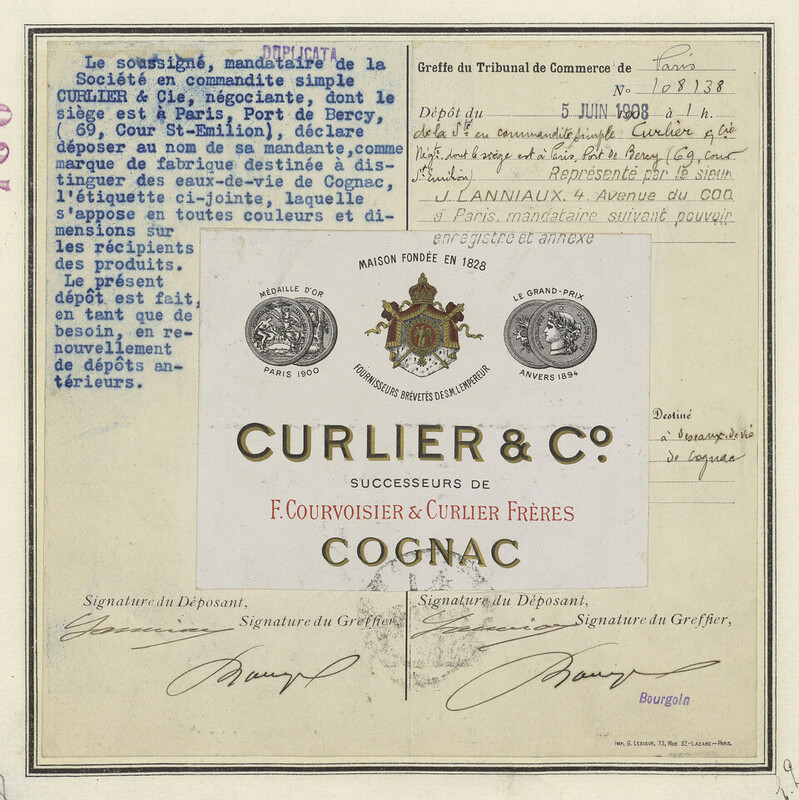 DUPLICATA
Le soussigné, mandataire de la
Société en commandite simple
CURLIER & Cie, négociante, dont le
siège est à Paris, Port de Bercy,
( 69, Cour St-Emilion), déclare
déposer au nom de sa mandante,comme
marque de fabrique destinée à dis-
tinguer des eaux-de-vie de Cognac,
l'étiquette ci-jointe, laquelle
s'appose en toutes couleurs et di-
mensions sur
les récipients
des produits.
Le présent
dépôt est fait,
en tant que de
besoin, en re-
nouvellement
de dépôts an-
térieurs.
Greffe du Tribunal de Commerce de Paris
No 108138
Dépôt du 5 JUIN 1908 à 1 h.
de la Sté en commandite simple Curlier & Cie
Négte. dont le siège est à Paris, Port de Bercy (69, Cour
St Emilion) Représenté par le sieur
J. LANNIAUX. 4. Avenue du COQ
à Paris. mandataire suivant pouvoir
enregistré et annexé
MAISON FONDÉE EN 1828
MÉDAILLE D'OR
PARIS 1900
LE GRAND-PRIX
ANVERS 1894
FOURNISSEURS BRÉVETÉS DE S.M. L'EMPEREUR
CURLIER & Co
SUCCESSEURS DE
F. COURVOISIER & CURLIER FRÈRES
COGNAC
Destiné
à des eaux-de-vie
de Cognac
Signature du Déposant,
Signature du Greffier,
Signature du Déposant,
Signature du Greffier,
Bourgoin
IMP. G. LESUEUR, 73, RUE ST-LAZARE — PARIS.